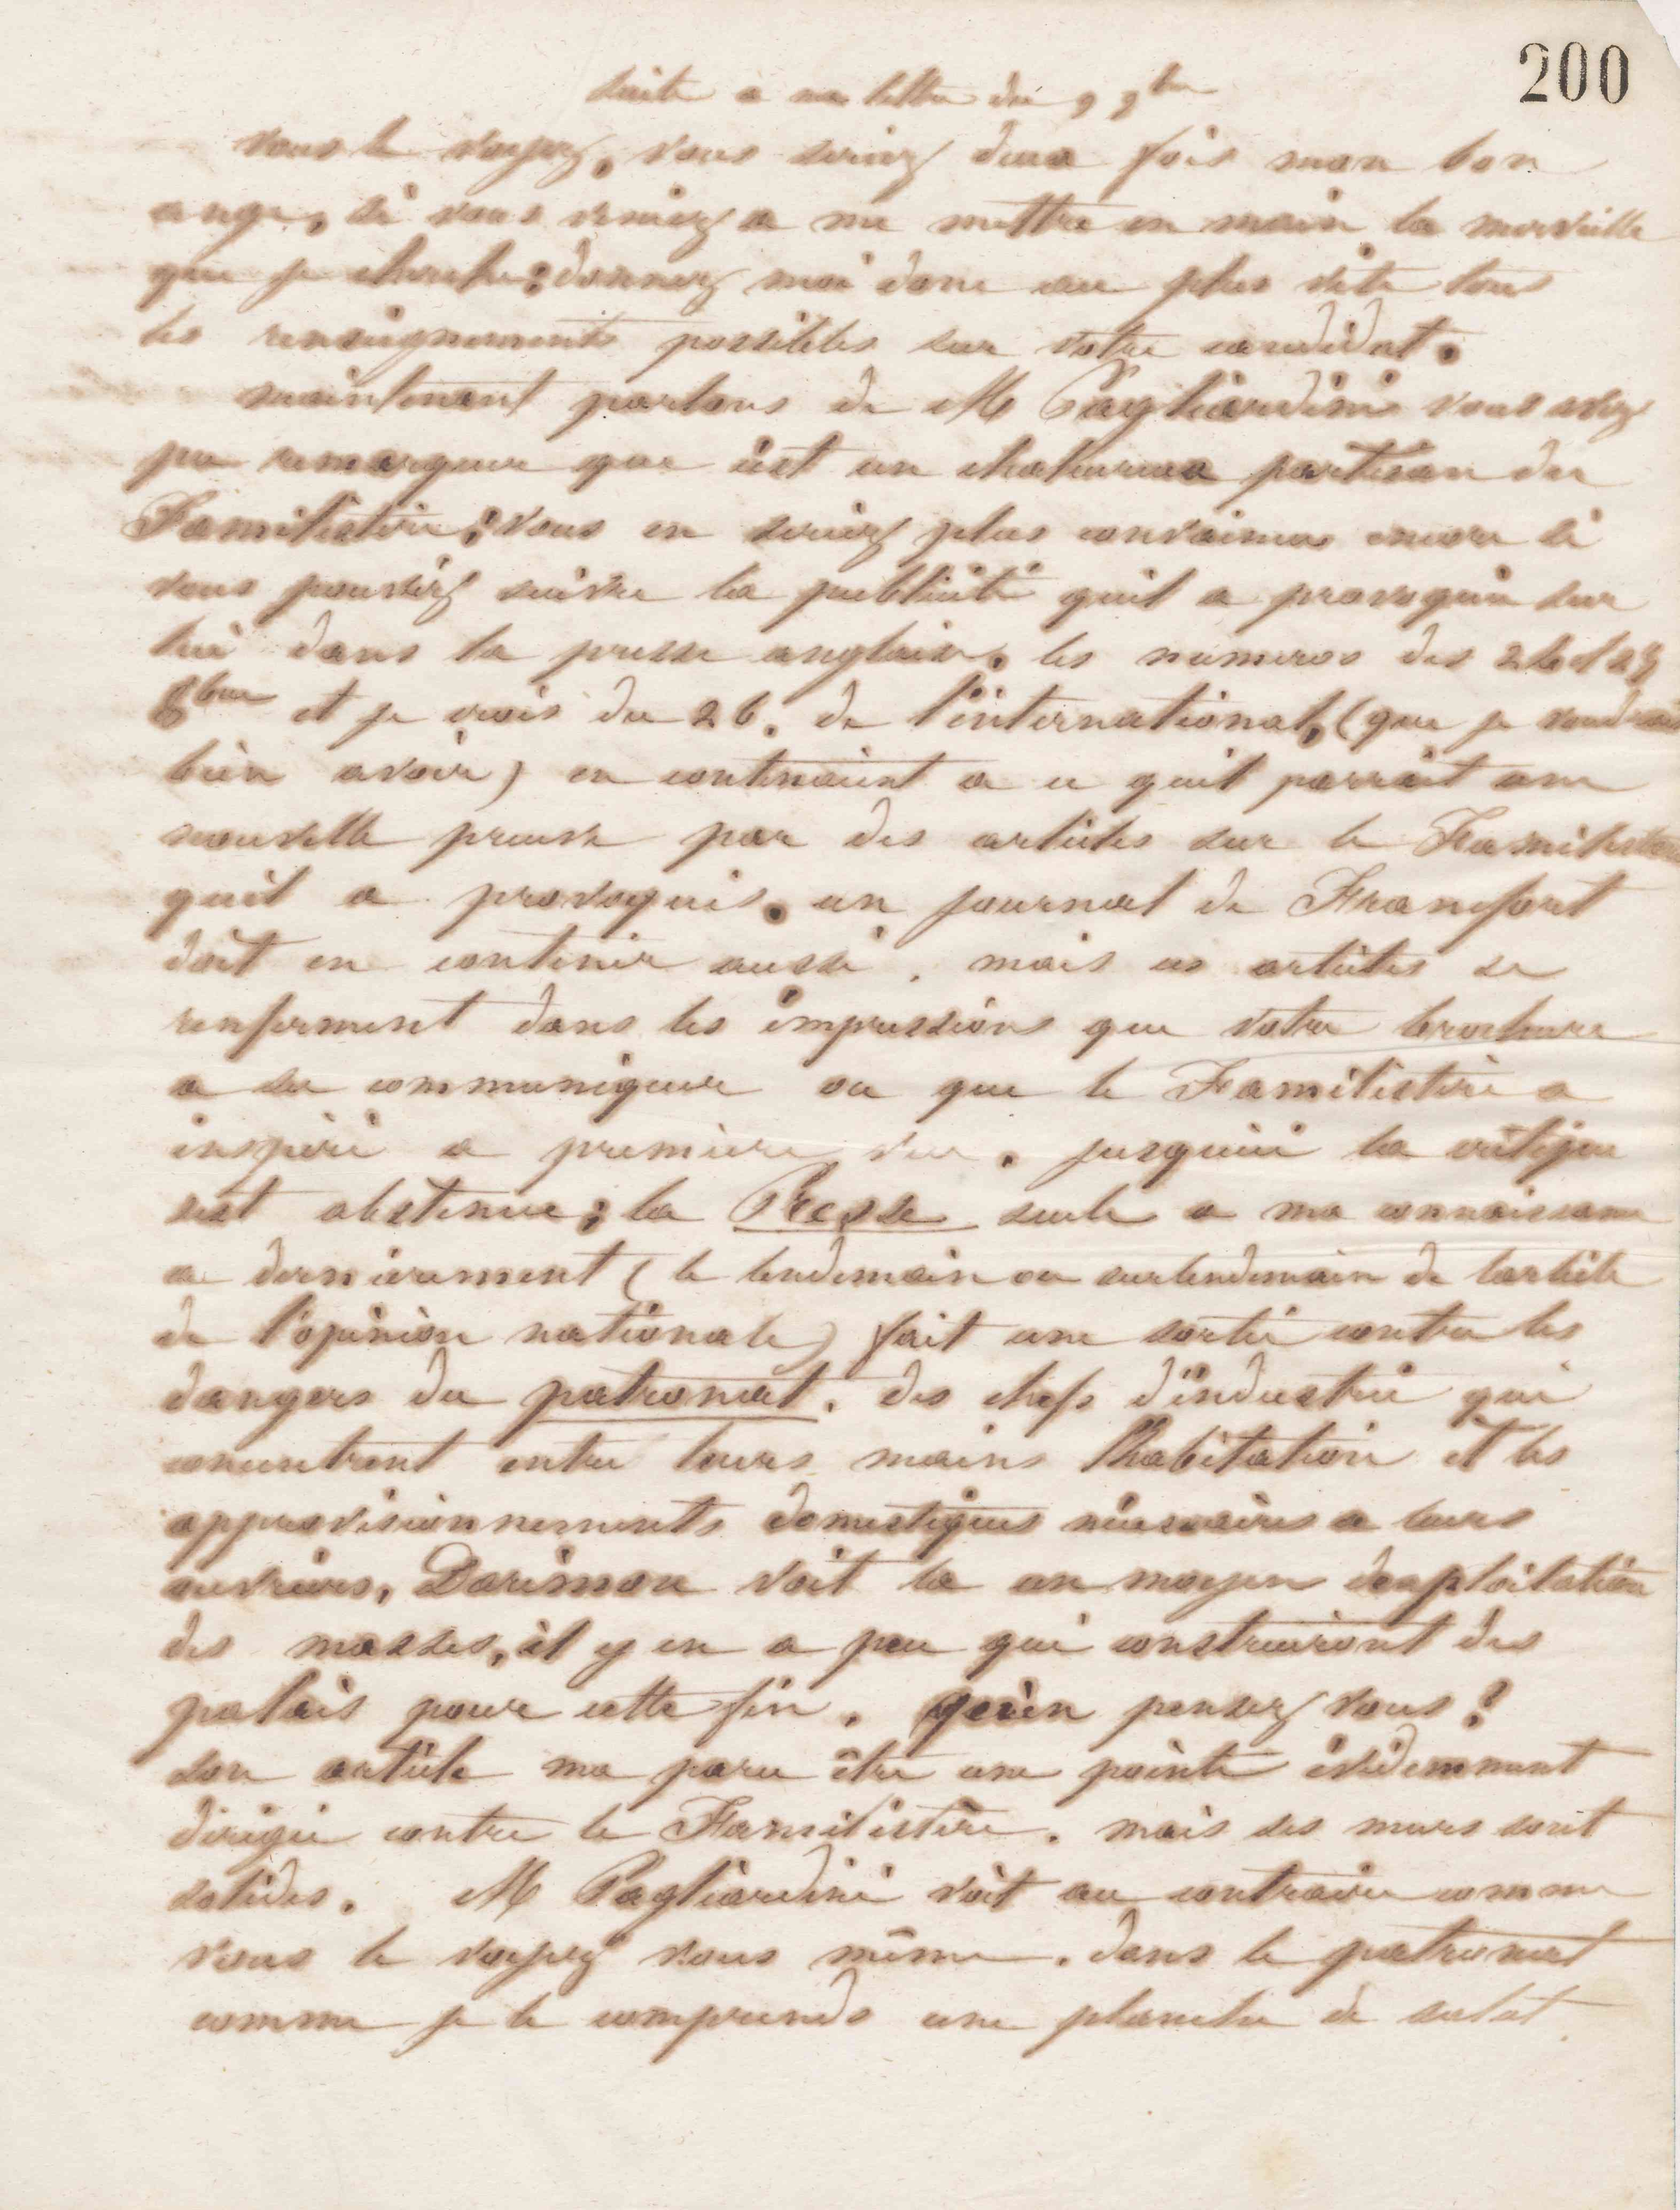 200
suite a ma lettre du 9 9bre
vous le voyez, vous seriez deux fois mon bon
ange, si vous veniez a me mettre en main la merveille
que je cherche; donnez moi donc au plus vite tous
les renseignements possibles sur votre candidat.
maintenant parlons de M Pagliardini vous avez
pu remarquer que c'est un chaleureux partisan du
Familistère; vous en seriez plus convaincus encore si
vous pouviez suivre la publicité quil a provoquée sur
lui dans la presse anglaise. les numeros des 24 et 25
8bre et je crois du 26. de l'international, (que je voudrais
bien avoir) en contenaient a ce quil parrait une
nouvelle preuve par des articles sur le Familistère
quil a provoqués. un journal de Francfort
doit en contenir aussi. mais ces articles se
renferment dans les impressions que votre brochure
a su communiquer ou que le Familistère a
inspiré a première vue. jusquici la critique
sest abstenue; la Presse seule a ma connaissance
a dernièrement (le lendemain ou surlendemain de larticle
de l'opinion nationale) fait une sortie contre les
dangers du patronat. des chefs d'industrie qui
concentrent entre leurs mains l'habitation et les
approvisionnements domestiques nécessaires a leurs
ouvriers, Darimon voit la un moyen dexploitation
des masses, il y en a peu qui construiront des
palais pour cette fin. qu'en pensez vous?
son article ma paru être une pointe évidemment
dirigée contre le Familistère. mais ses murs sont
solides. M Pagliardini voit au contraire comme
vous le voyez vous même. dans le patronat
comme je le comprends une planche de salut.